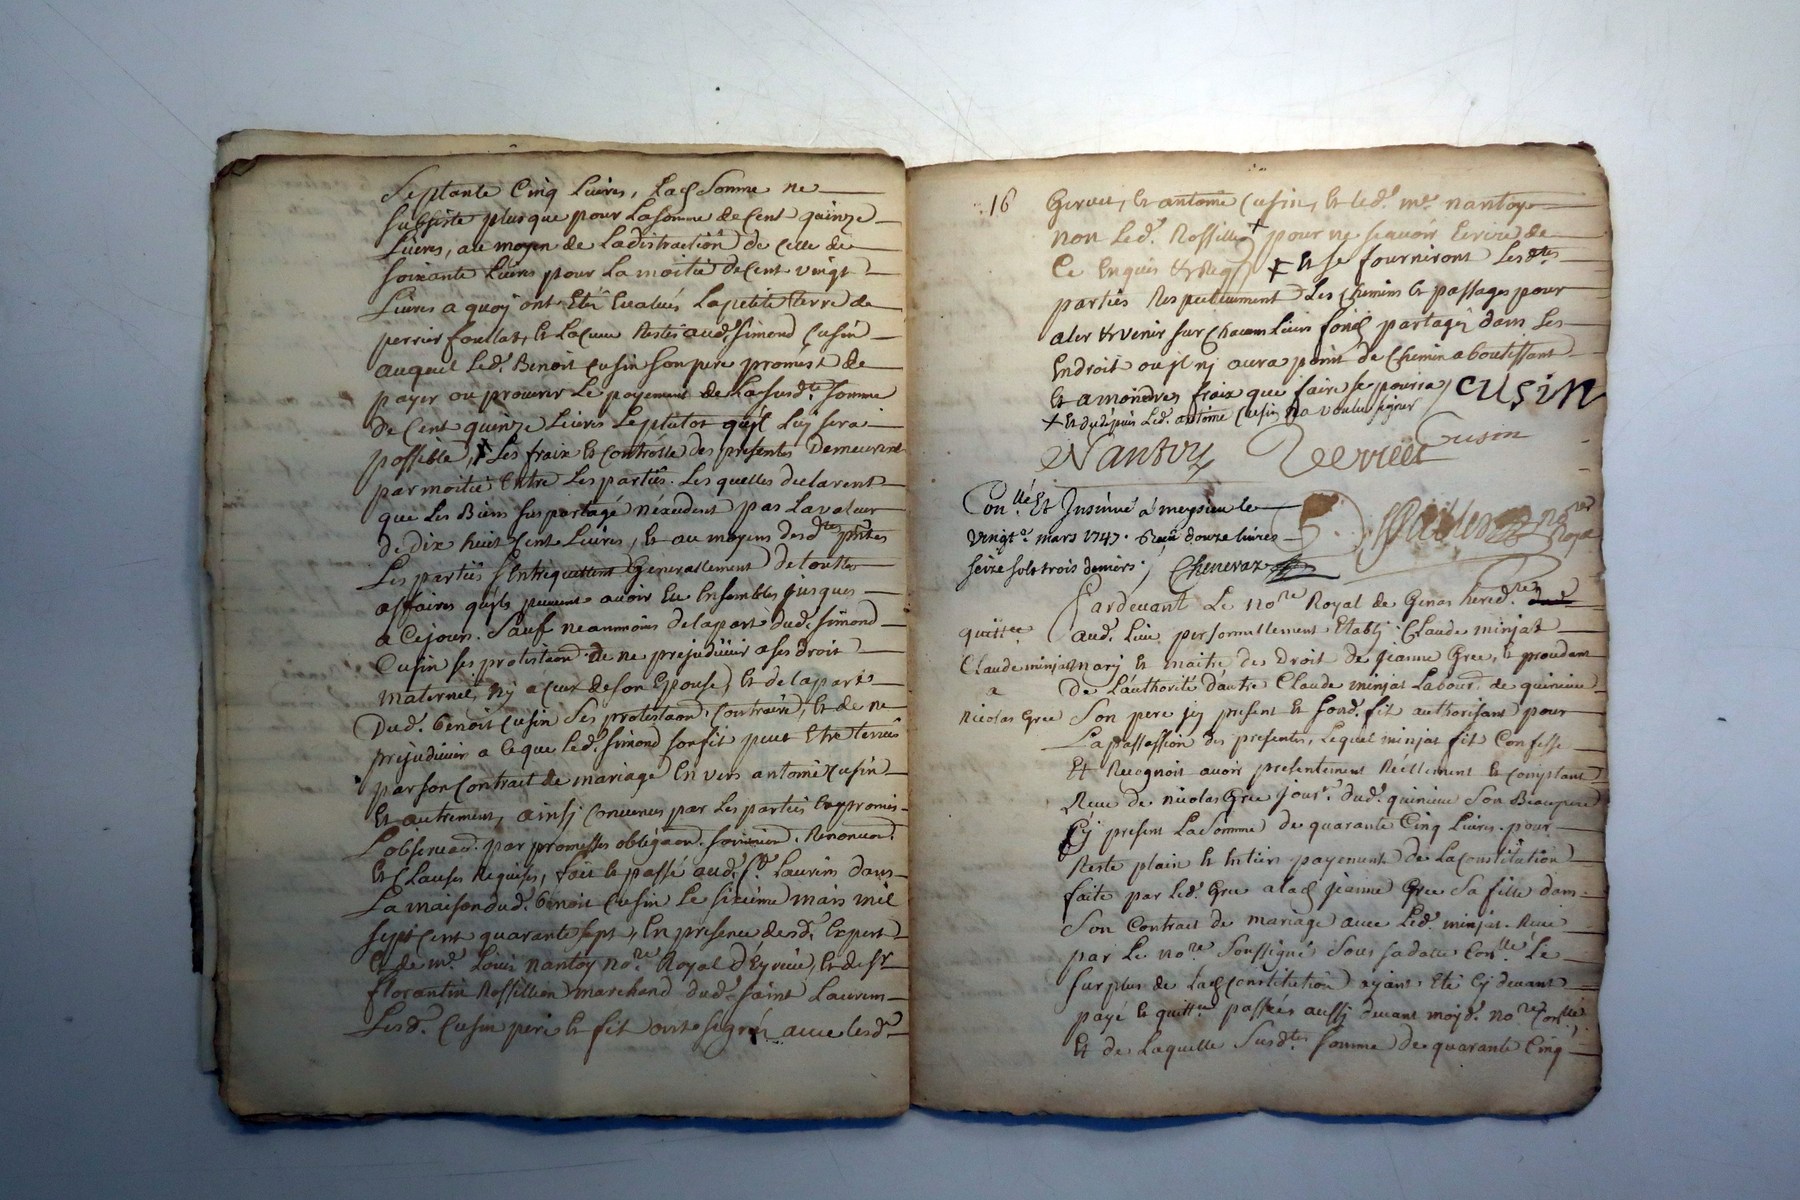 Septante Cinq Livres, Lad Somme ne
subsiste plus que pour La somme de Cent quinze
Livres, au moyen de La distraction de Celle de
soixante Livres pour La moitié de Cent vingt
Livres a quoy ont Eté Evalués La petite terre de
perrier foullat, et La Cuve Restés aud. Simond Cusin
auquel Led. Benoit Cusin son pere promest de
payer ou procurer Le payement de La susd.te somme
de Cent quinze Livres Le plutot qu'jl Luy sera
possible, Les fraix et Contrôlle des presentes Demeurent
par moitié Entre Les partiës. Les quelles declarent
que Les Biens sus partagé n'excedent pas La valeur
de Dix huit Cent Livres, et au moyens desd.tes pntes
Les partiës s'Entrequittent Generallement De toutte
affaires qu'ils peuvent avoir Eu Ensembles jusques
a Ce jours. Sauf neanmoins de La part dud. Simond
Cusin ses protestaon de ne prejudicier a ses droit
maternel, Ny a Ceux de son Epouse, et de La part
Dud. Benoit Cusin Ses protestaon Contraire, et de ne
prejudicier a Ce que Led. Simond son fit peut Etre tenus
par son Contract de mariage En vers antoine Cusin
Et autrement, ainsj Convenus par Les partiës Et promis
L'observaon. par promesses obligaon. Renonciaon.
et Clauses Requises, fait et passé aud. St. Laurens dans
La maison dud. Benoit Cusin Le sixieme mars mil
sept Cent quarante sept, En presence desd. Expert
Et de me. Louis Nantoy no.re Royal d'Eyrieu, et de sr
florantin Rossillion marchand dud. Saint Laurens
Lesd. Cusin pere et fit ont signés avec lesd.
16 Gervet, et antoine Cusin, et Led. me. nantoy
non Led. Rossillion + pour ne scavoir Ecrire de
Ce Enquis et Requis ‡ Et se fourniront Lesd.tes
partiës Respectivement Les Chemins et passages pour
aler et venir sur Chacun Leurs fond partagé dans Les
Endroit ou jl nj aura point de Chemin aboutissant
et a moindres fraix que faire se pourra, CUSiN
+ Et du depuis Led. antoine Cusin n'a voulu signer
Nantoy Gerveet Cusin
Con.llé Et Jnsinué á meysieu le
vingt. mars 1747. Reçu douze livres
seize sols trois deniers. Chenevaz
no.re Royal
Pardevant Le no.re Royal de Genas hered.re
quittce aud. Lieu personnellement Etablj Claude minjat
Claude minjat mary et maitre des Droit de Jeanne Gree, et procedant
a de L'authorité d'autre Claude minjat Labour. de quincieu
Nicolas Gree Son pere jcy present et Sond. fit authorisant pour
La passassion des presentes, Lequel minjat fit Confesse
Et Recognoit avoir presentement Reëllement et Comptant
Receu de nicolas Gree jour. dud. quincieu Son Beaupere
Cy present La Somme de quarante Cinq Livres pour
Reste plain et Entier payement de La Constitution
faite par Led. Gree a lad Jeanne Gree Sa fille dans
Son Contract de mariage avec Led. minjat. Receu
par Le no.re Soussigné Sous sa datte Con.llé Le
surplus de Lad Constitution ayant Eté Cy devant
payé et quitt.ce passées aussj devant moyd. no.re Con.llée,
Et de Laquelle Susd.te somme de quarante Cinq